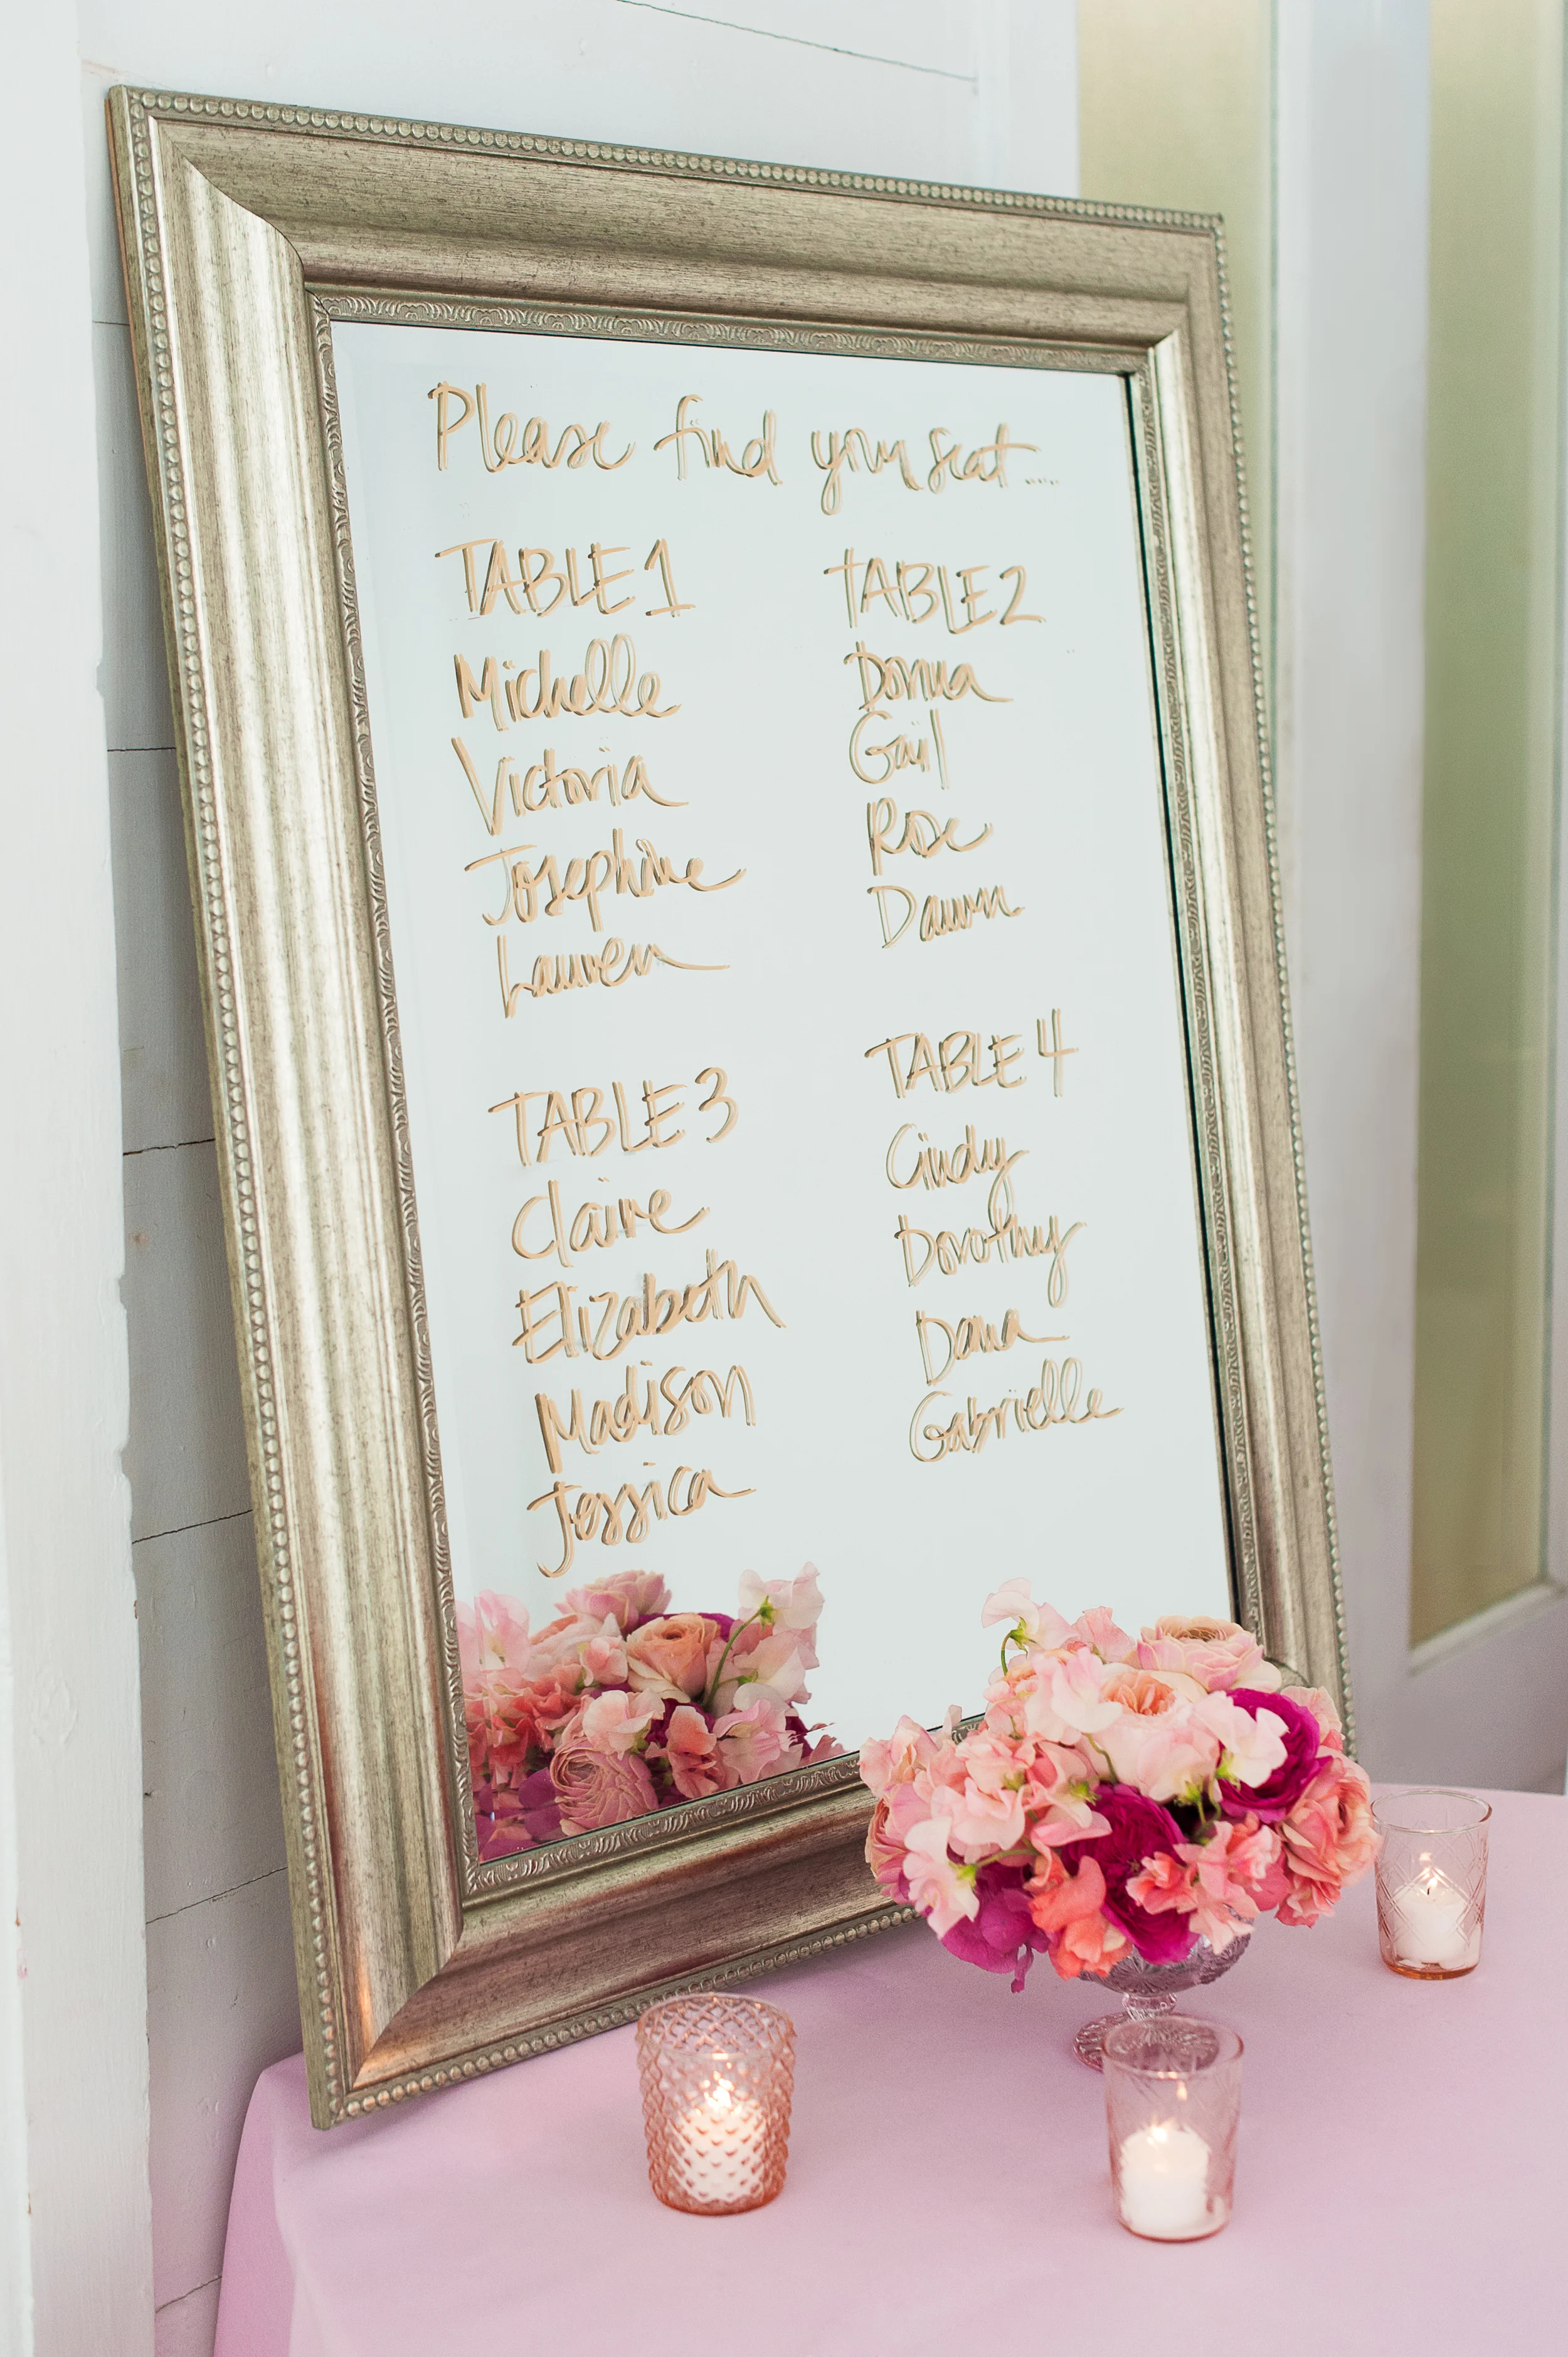 Please find your seat....
TABLE 1
Michelle
Victoria
Josephine
Lauren
TABLE 2
Donna
Gail
Rose
Dawn
TABLE 3
Claire
Elizabeth
Madison
Jessica
TABLE 4
Cindy
Dorothy
Dana
Gabrielle